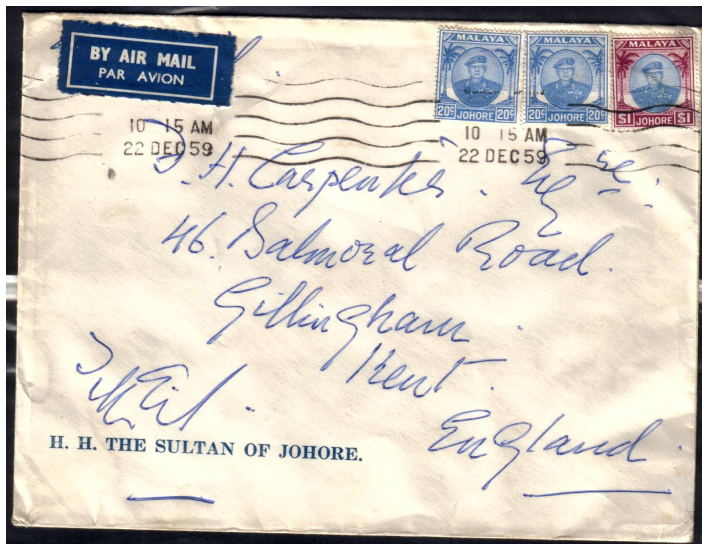 BY AIR MAIL
PAR AVION
MALAYA
20c JOHORE 20c
MALAYA
20c JOHORE 20c
MALAYA
$1 JOHORE $1
10 15 AM
22 DEC 59
10 15 AM
22 DEC 59
H. Carpenter. Esqre.
46. Balmoral Road.
Gillingham.
Kent.
England.
H. H. THE SULTAN OF JOHORE.